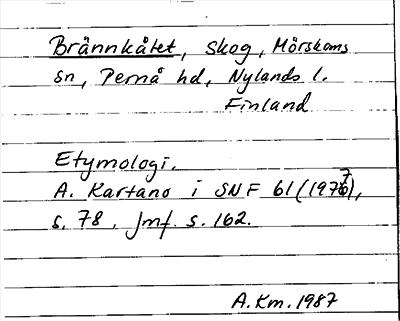 Brännkåtet, skog, Mörskoms
sn, Pernå hd, Nylands l.
Finland
Etymologi.
A. Kartano i SNF 61 (1977),
s. 78. Jmf. s. 162.
A.Km. 1987